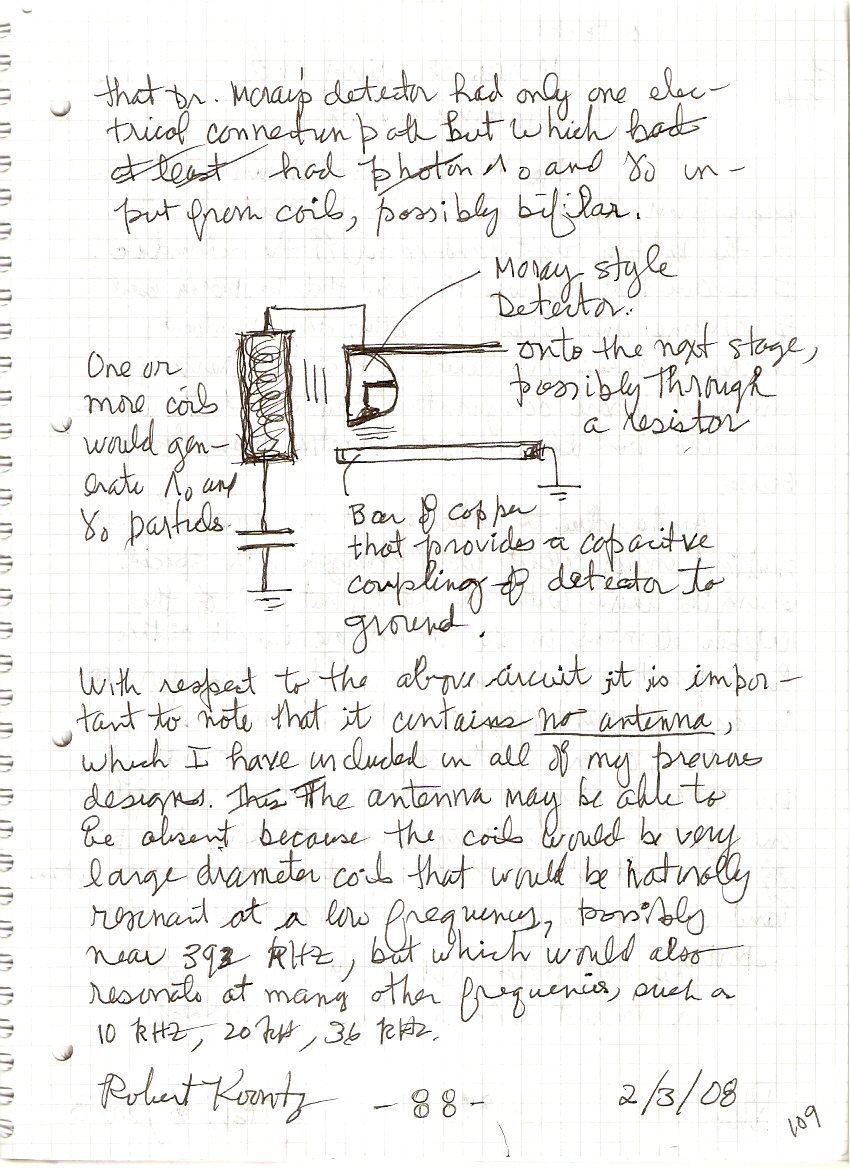 that Dr. Moray's detector had only one elec-
trical connection path but which had
at least had photon Λo and γo in-
put from coils, possibly bifilar.
Moray style
Detector.
onto the next stage,
possibly through
a resistor
One or
more coils
would gen-
erate Λo and
γo particls.
Bar of copper
that provides a capacitve
coupling of detector to
ground.
With respect to the above circuit it is impor-
tant to note that it contains no antenna,
which I have included in all of my previous
designs. This The antenna may be able to
be absent because the coils would be very
large diameter coils that would be naturally
resonant at a low frequency, possibly
near 392 KHZ, but which would also
resonate at many other frequencies, such a
10 kHZ, 20 kH, 36 kHZ.
Robert Koontz
- 88 -
2/3/08
109